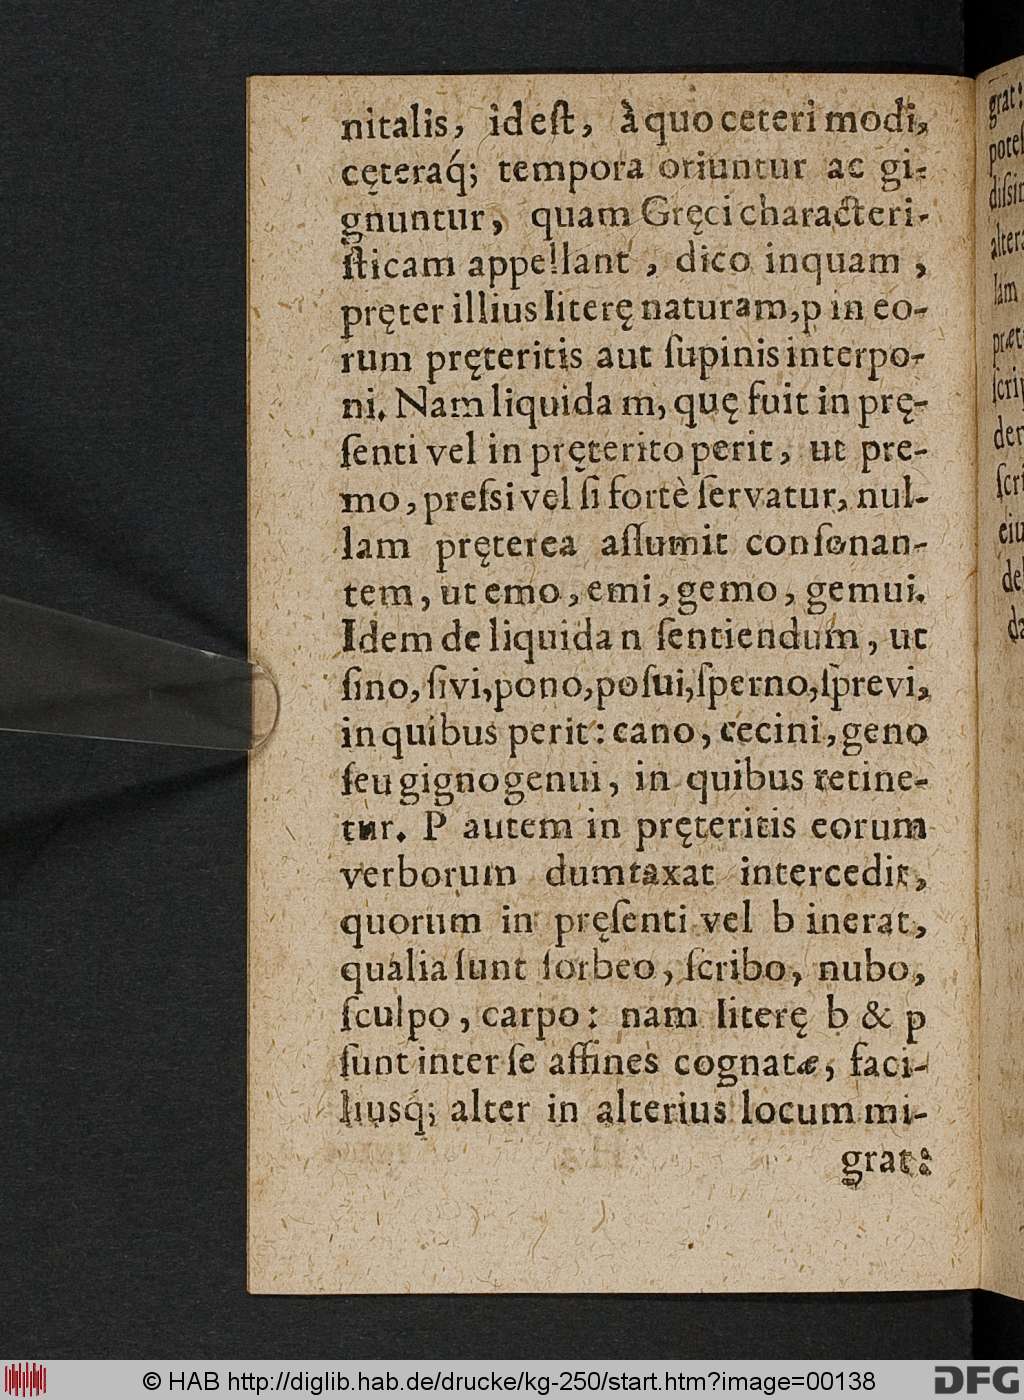 nitalis, id eſt, à quo ceteri modi,
cęteraq́; tempora oriuntur ac gi-
gnuntur, quam Gręci characteri-
ſticam appellant, dico inquam,
pręter illius literę naturam, p in eo-
rum pręteritis aut ſupinis interpo-
ni. Nam liquida m, quę fuit in prę-
ſenti vel in pręterito perit, ut pre-
mo, preſsi vel ſi fortè ſervatur, nul-
lam pręterea aſſumit conſonan-
tem, ut emo, emi, gemo, gemui.
Idem de liquida n ſentiendum, ut
ſino, ſivi, pono, poſui, ſperno, ſprevi,
in quibus perit: cano, cecini, geno
ſeu gigno genui, in quibus retine-
tur. P autem in pręteritis eorum
verborum dumtaxat intercedit,
quorum in pręſenti vel b inerat,
qualia ſunt ſorbeo, ſcribo, nubo,
ſculpo, carpo: nam literę b & p
ſunt inter ſe affines cognatæ, faci-
liusq́; alter in alterius locum mi-
grat:
grat:
potes
diſsim
altera
lam
præt
ſcrip
den
ſcri
eiu
del
da
© HAB http://diglib.hab.de/drucke/kg-250/start.htm?image=00138
DFG